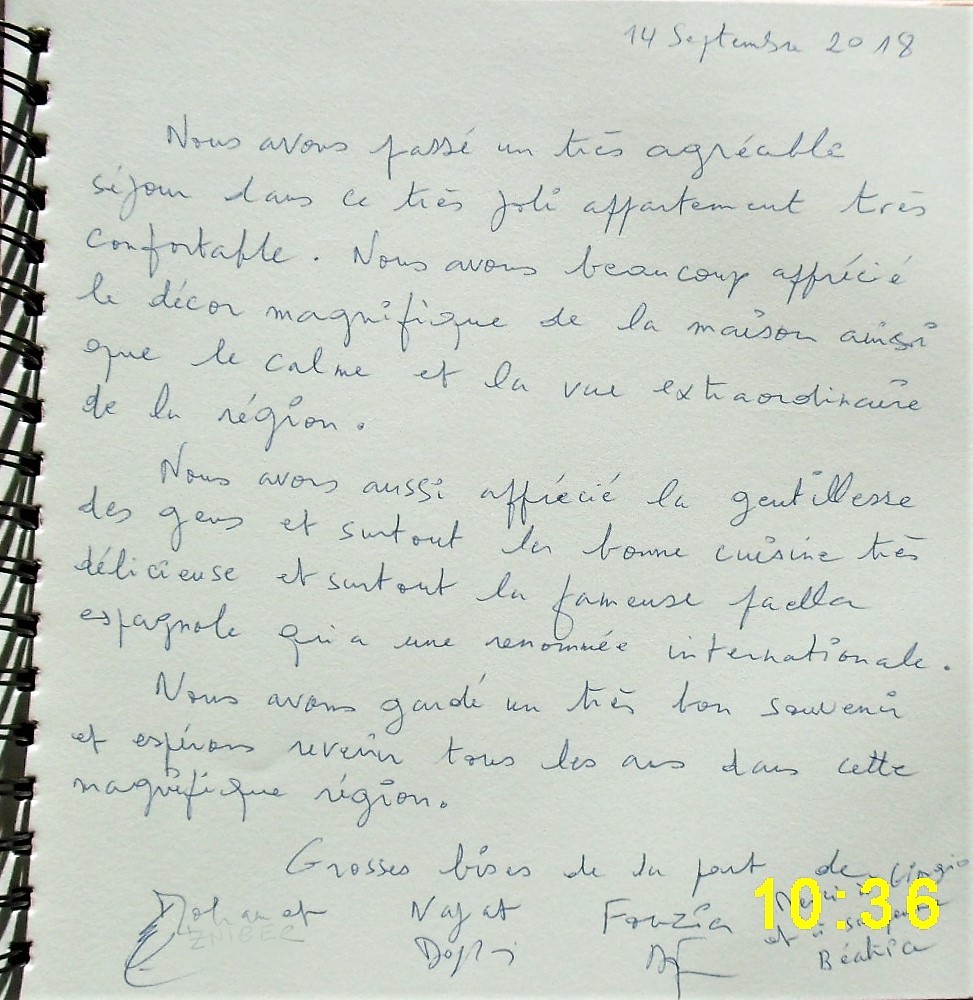 14 Septembre 2018
Nous avons passé un très agréable
séjour dans ce très joli appartement très
confortable. Nous avons beaucoup apprécié
le décor magnifique de la maison ainsi
que le calme et la vue extraordinaire
de la région.
Nous avons aussi apprécié la gentillesse
des gens et surtout la bonne cuisine très
délicieuse et surtout la fameuse paella
espagnole qui a une renommée internationale.
Nous avons gardé un très bon souvenir
et espérons revenir tous les ans dans cette
magnifique région.
Grosses bises de la part de
Mohamet Najat Fouzia
ZNIBER
Merci à Giorgio
et à sa
Béatrice
10:36